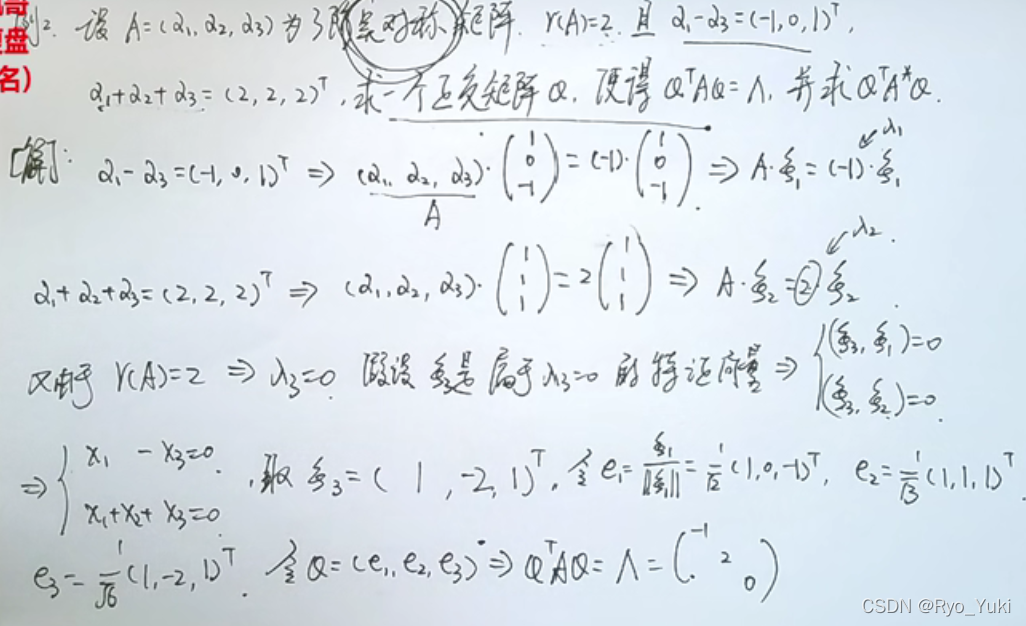 哥
例2. 设 A=(α₁, α₂, α₃) 为3阶实对称矩阵. r(A)=2. 且 α₁-α₃=(-1,0,1)ᵀ,
盘
名) α₁+α₂+α₃=(2,2,2)ᵀ, 求一个正交矩阵Q, 使得 QᵀAQ=Λ, 并求QᵀA*Q.
[解]: α₁-α₃=(-1,0,1)ᵀ ⇒ (α₁, α₂, α₃)·(1 0 -1)=(-1)·(1 0 -1) ⇒ A·ξ₁=(-1)·ξ₁ ↙λ₁
A
α₁+α₂+α₃=(2,2,2)ᵀ ⇒ (α₁,α₂,α₃)·(1 1 1)=2(1 1 1) ⇒ A·ξ₂=2ξ₂ ↙λ₂.
又由于 r(A)=2 ⇒ λ₃=0 假设ξ₃是属于λ₃=0 的特征向量 ⇒ {(ξ₃,ξ₁)=0 (ξ₃,ξ₂)=0.
⇒ {x₁ -x₃=0. x₁+x₂+x₃=0. , 取ξ₃=(1,-2,1)ᵀ, 令 e₁=ξ₁/||ξ₁||=1/√2(1,0,-1)ᵀ, e₂=1/√3(1,1,1)ᵀ
e₃=1/√6(1,-2,1)ᵀ. 令Q=(e₁,e₂,e₃) ⇒ QᵀAQ=Λ=(-1 2 0)
CSDN @Ryo_Yuki